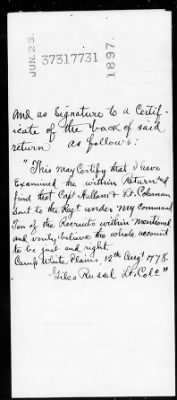 JUN. 25.
37317731
1897.
And as Signature to a Certif-
icate of the back of said
return as follows:
"This may Certify that I have
Examined the within Return and
find that Capt Hallam & Dr. Coleman
Sent to the Regt under my Command
Ten of the Recruits within mentioned
and verily believe the whole account
to be just and right.
Camp White Plains, 12th Augt 1778.
Giles Russel Lt Colo"